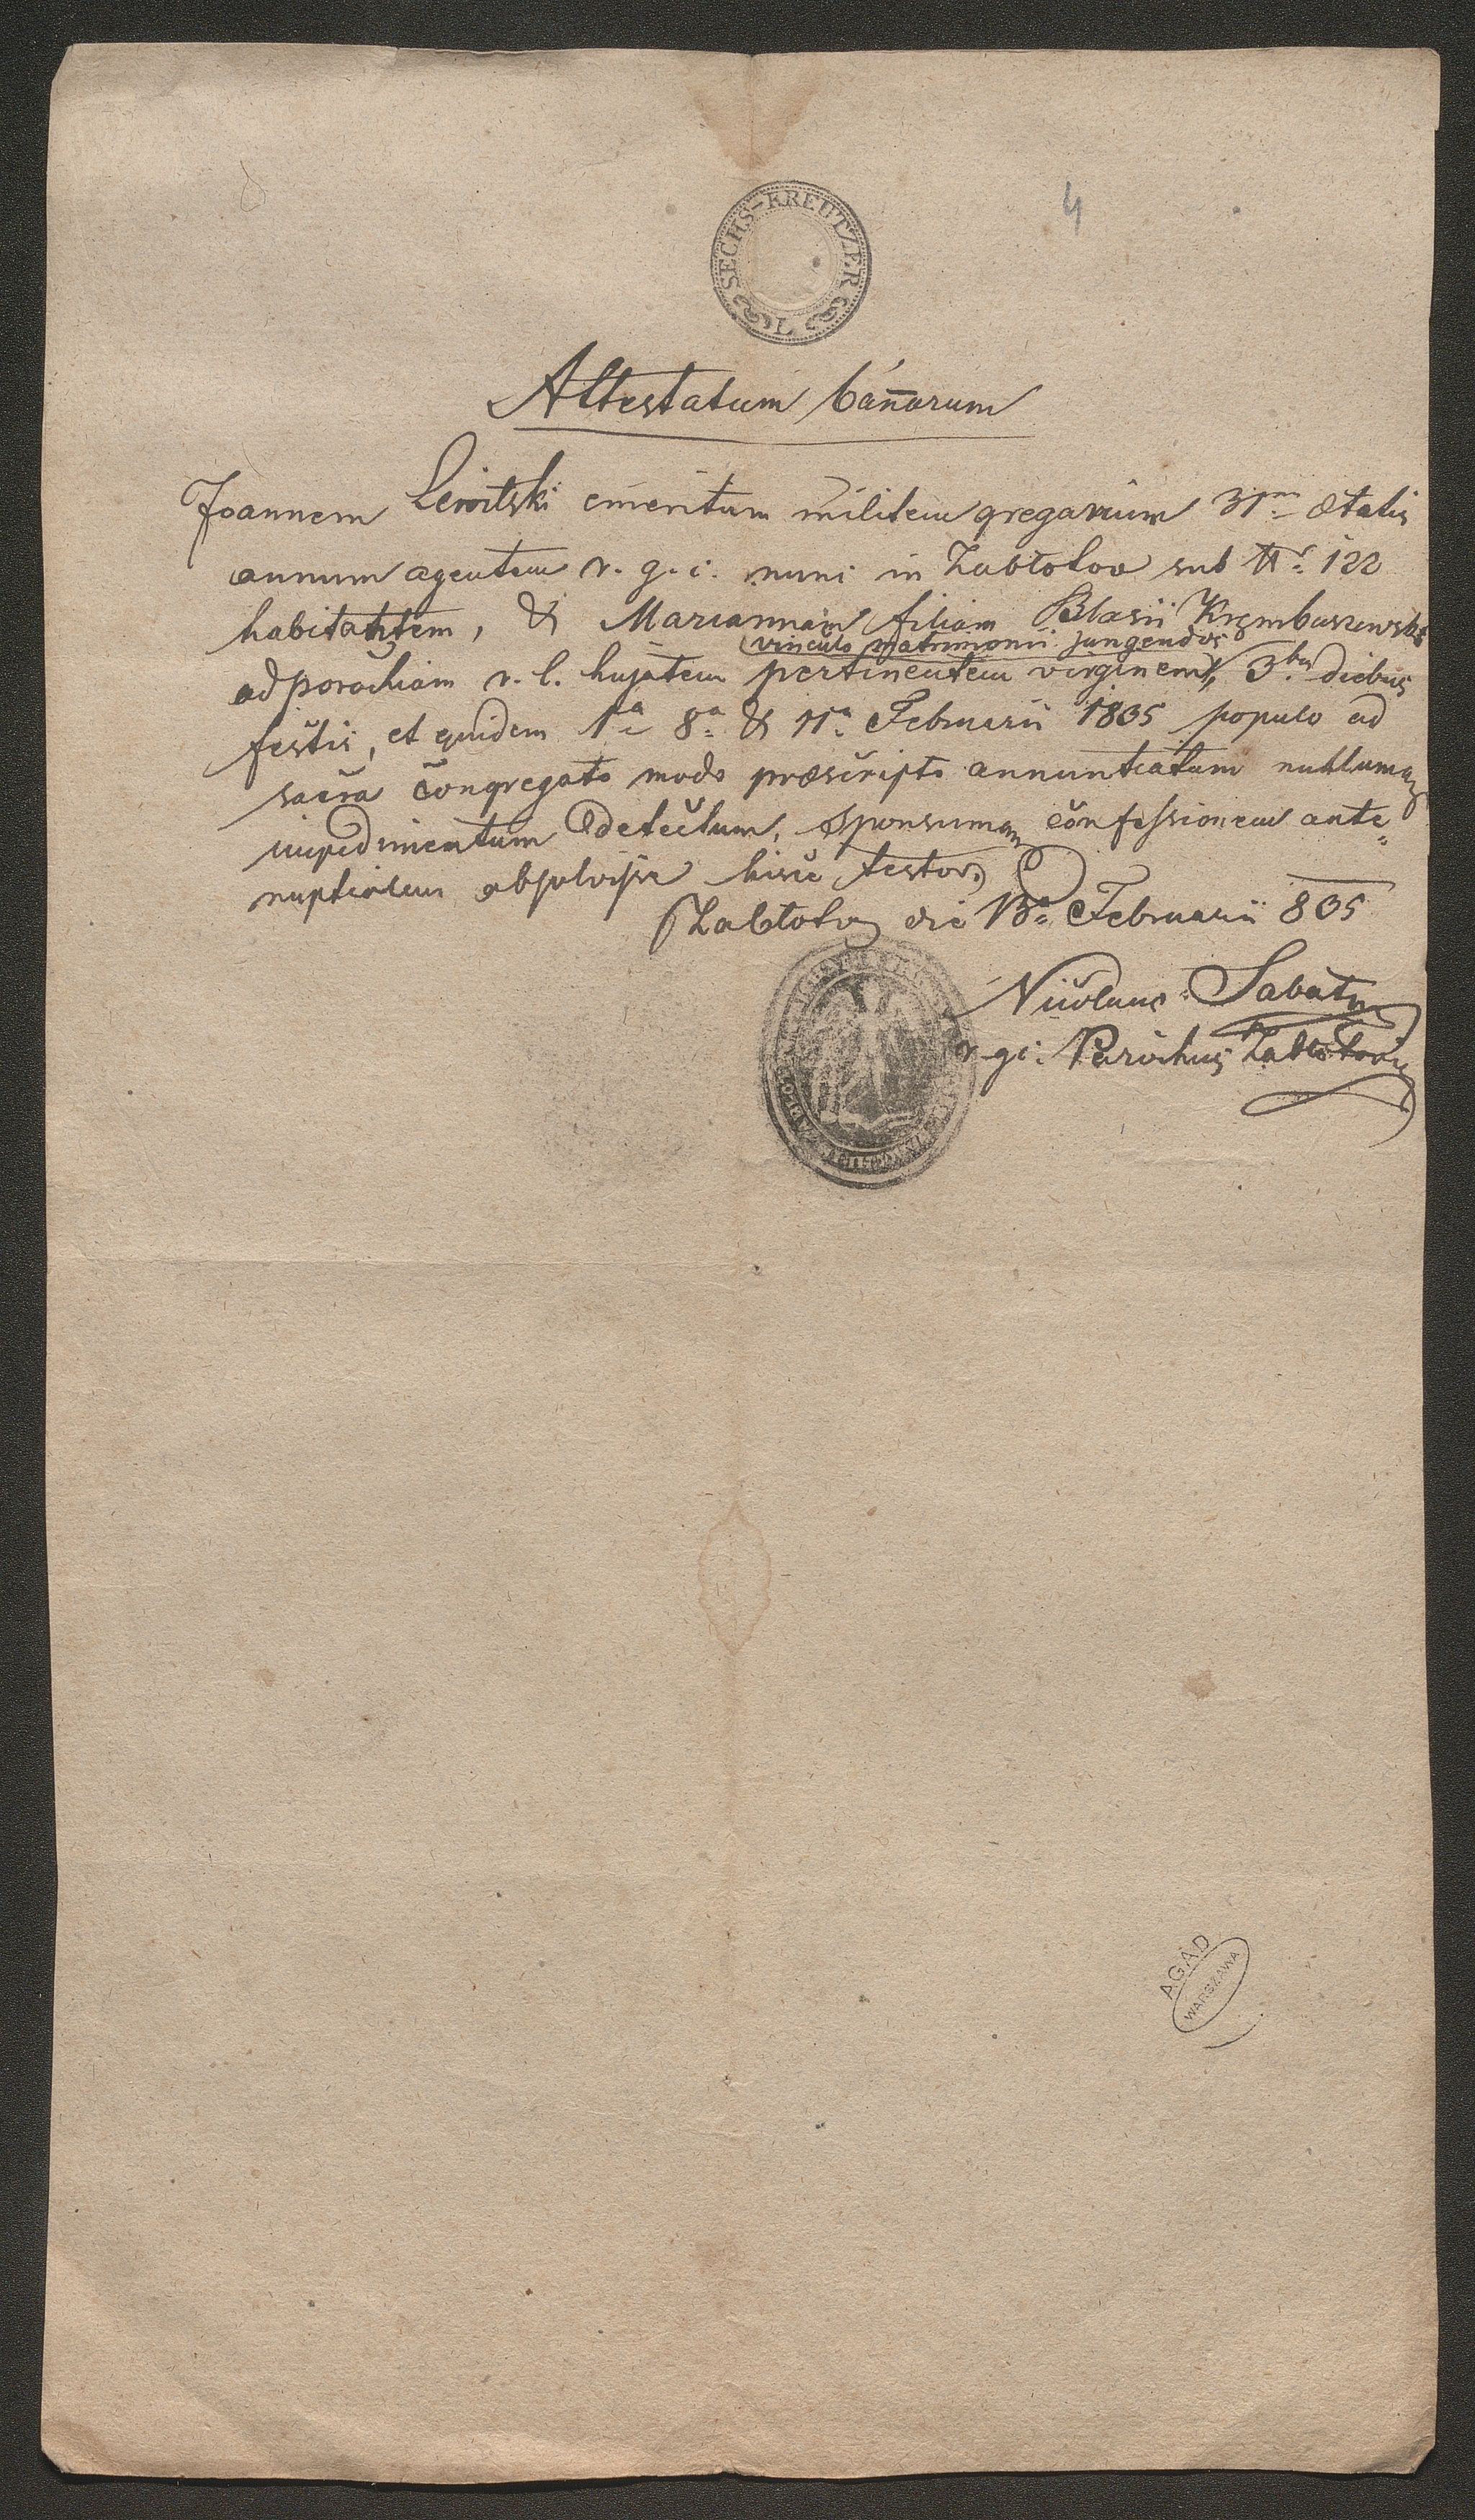 4
SECHS-KREUTZER
L
Attestatum bannorum
Joannem Lewitski emeritum militem gregarium 31m ætatis
annum agentem r. g. c. nunc in Zabłotow sub Nr. 122
habitantem, & Mariannam filiam Blasii Krembuszewski
vinculo matrimonii jungendos
ad parochiam r. l. hujatem pertinentem virginem, 3bus diebus
festis, et quidem 1a 8a & 11a Februarii 1835 populo ad
sacra congregato modo præscripto annunciatum nullumq
impedimentum detectum, sponsumq confessionem ante=
nuptialem absolvisse hisce testor.
Zabłotow die 13a Februarii 835
Nicolaus Sabat
r. g. c. Parochus Zabłotow
AGAD
WARSZAWA